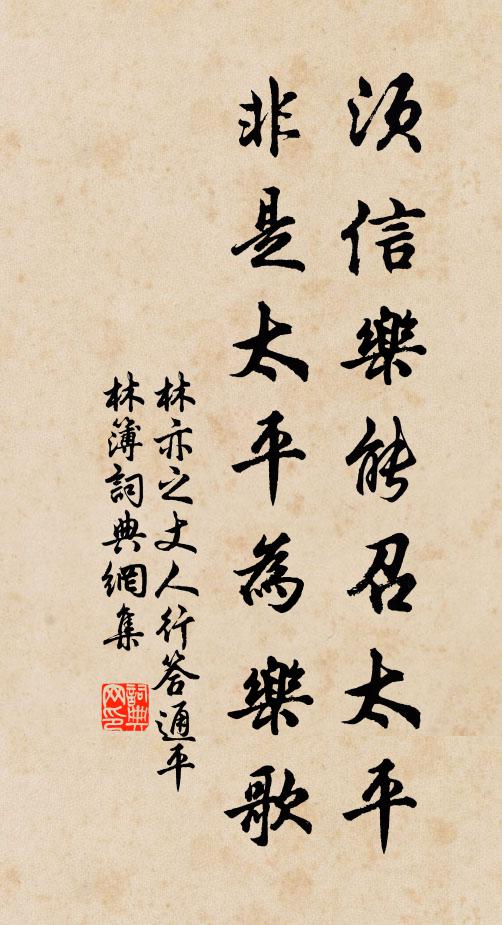 須信樂能召太平
非是太平為樂歌
林亦之丈人行答通平
林簿詞典網集
詞典
网印